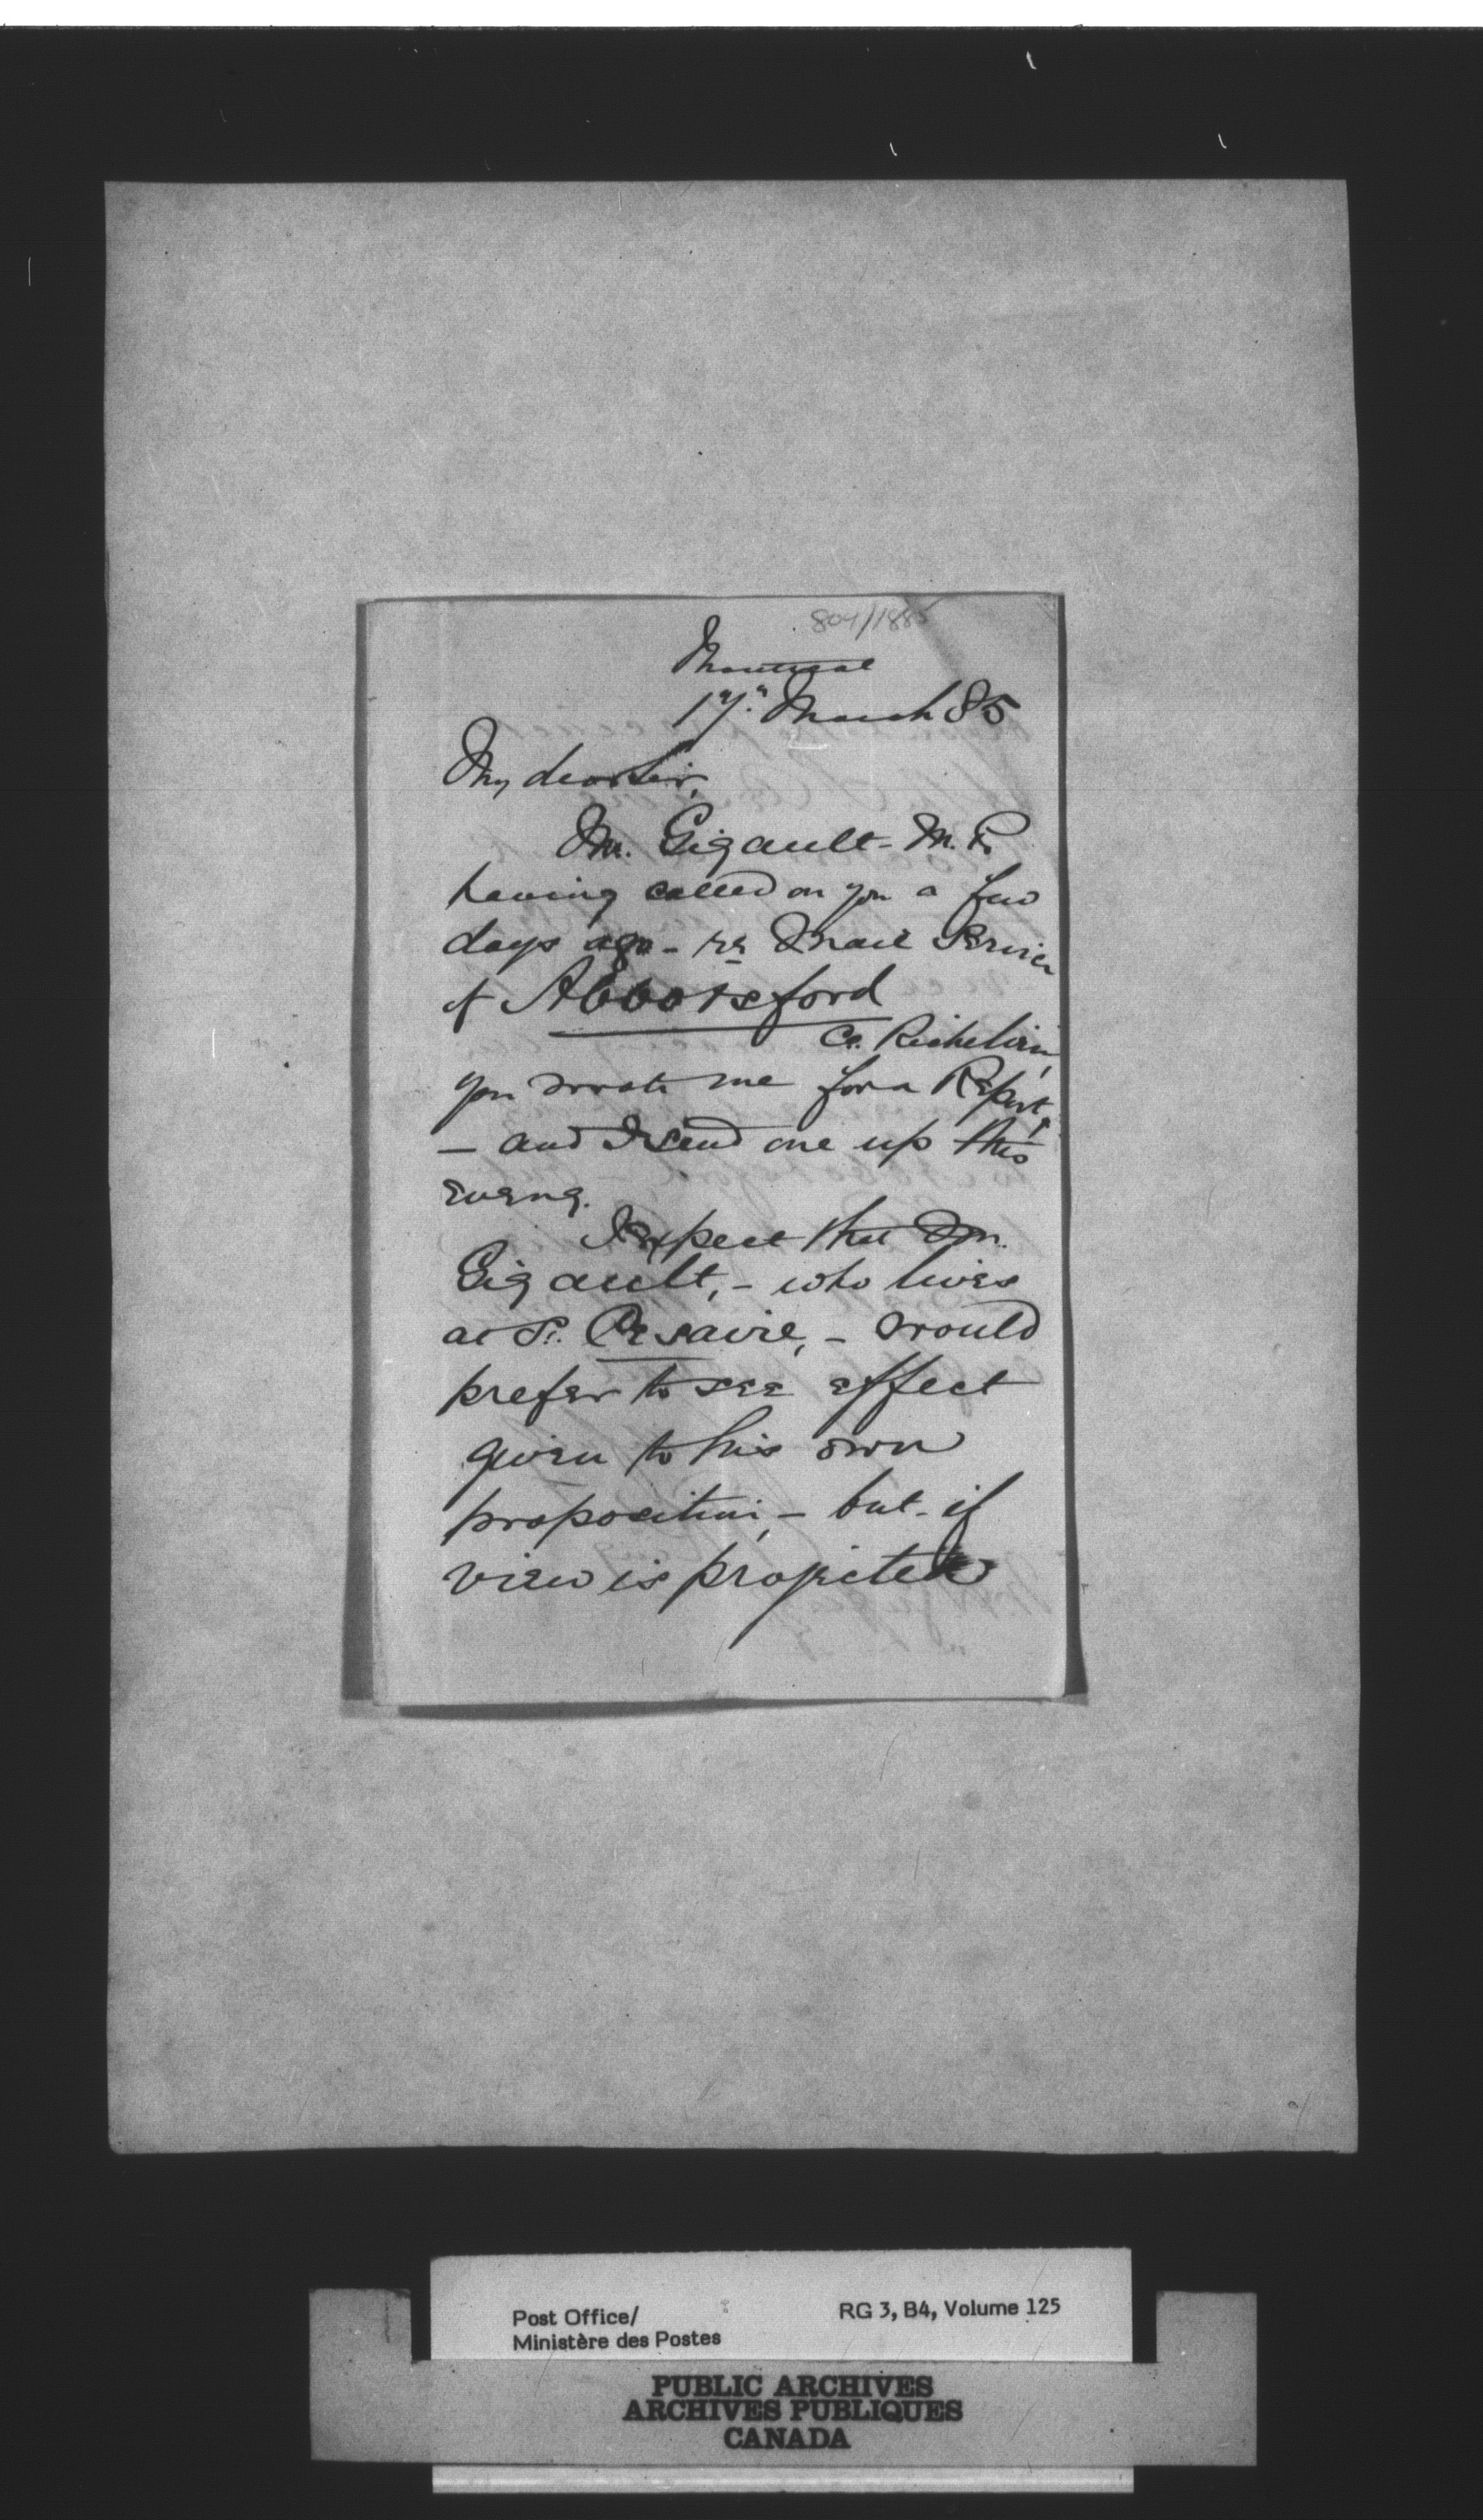 804/1885
Montreal
17." March 85
My dear Sir,
Mr. Gigault - M.P.
having called on you a few
days ago - re Mail Service
of Abbotsford
Co. Richelieu,
you wrote me for a Report,
- and I send one up this
eveng.
I expect that Mr.
Gigault, - who lives
at St. Cesaire, - would
prefer to see effect
given to his own
proposition, - but - if
view is
Post Office/
Ministère des Postes
RG 3, B4, Volume 125
PUBLIC ARCHIVES
ARCHIVES PUBLIQUES
CANADA